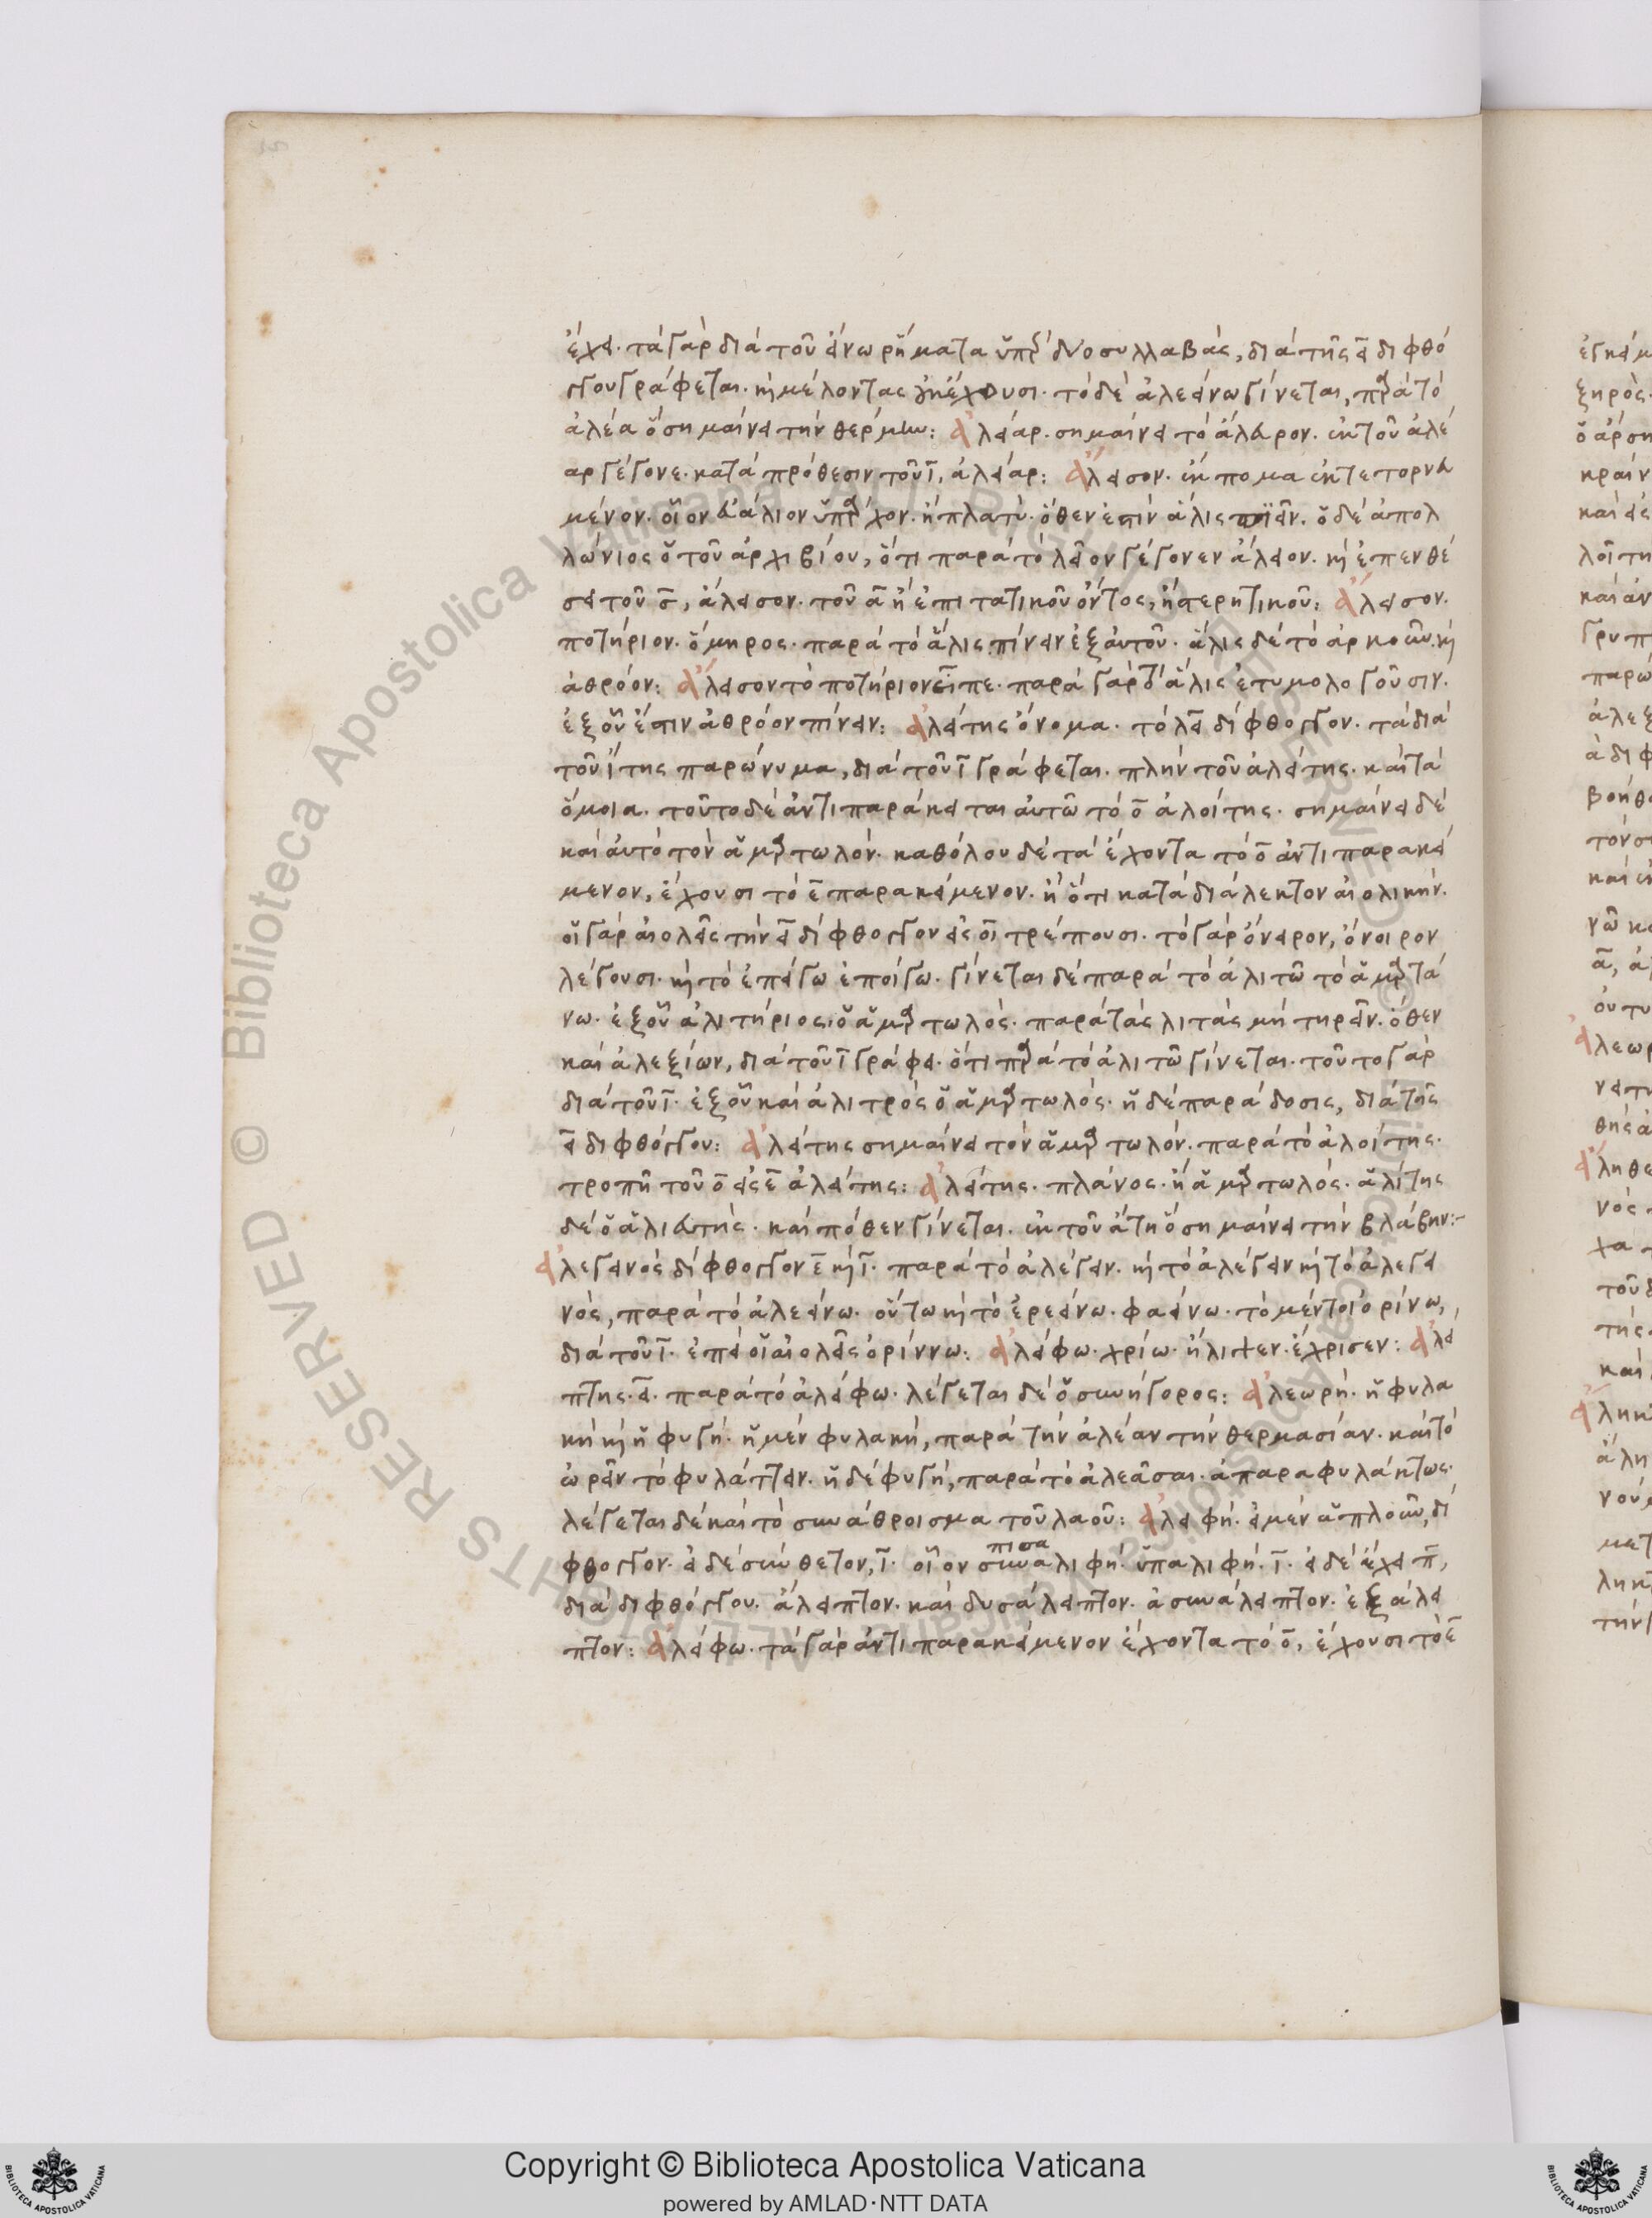 ἔχει. τὰ γὰρ διὰ τοῦ είνω ρήματα ὑπὲρ δύο συλλαβὰς, διὰ τῆς ει διφθό
γγου γράφεται. καὶ μέλλοντας οὐκ ἔχουσι. τὸ δὲ ἀλεείνω γίνεται, παρὰ τὸ
ἀλέα ὃ σημαίνει τὴν θέρμην: ἀλείαρ. σημαίνει τὸ ἄλευρον. ἐκ τοῦ ἀλέ
αρ γέγονε. κατὰ πρόθεσιν τοῦ ι, ἀλείαρ: ἄλεισον. ἔκπομα ἐκτετορνευ
μένον. οἷον εὐάλιον ὑπάρχον. ἢ πλατύ. ὅθεν ἐστὶν ἅλις πιεῖν. ὁ δὲ ἀπολ
λώνιος ὁ τοῦ ἀρχιβίου, ὅτι παρὰ τὸ λεῖον γέγονεν ἄλειον. καὶ ἐπενθέ
σει τοῦ σ, ἄλεισον. τοῦ α ἢ ἐπιτατικοῦ ὄντος, ἢ στερητικοῦ: ἄλεισον.
ποτήριον. ὅμηρος. παρὰ τὸ ἅλις πίνειν ἐξ αὐτοῦ. ἅλις δὲ τὸ ἀρκοῦν. καὶ
ἀθρόον: ἄλεισον τὸ ποτήριον εἶπε. παρὰ γὰρ τὸ ἅλις ἐτυμολογοῦσιν.
ἐξ οὗ ἔστιν ἀθρόον πίνειν: ἀλείτης ὄνομα. τὸ λει δίφθογγον. τὰ διὰ
τοῦ ίτης παρώνυμα, διὰ τοῦ ι γράφεται. πλὴν τοῦ ἀλείτης. καὶ τὰ
ὅμοια. τοῦτο δὲ ἀντιπαράκειται αὐτῶ τὸ ο ἀλοίτης. σημαίνει δὲ
καὶ αὐτὸ τὸν ἁμαρτωλόν. καθόλου δὲ τὰ ἔχοντα τὸ ο ἀντιπαρακεί
μενον, ἔχουσι τὸ ε παρακείμενον. ἢ ὅτι κατὰ διάλεκτον αἰολικήν.
οἱ γὰρ αἰολεῖς τὴν ει δίφθογγον εἰς οι τρέπουσι. τὸ γὰρ ὄνειρον, ὄνοιρον
λέγουσι. καὶ τὸ ἐπείγω ἐποίγω. γίνεται δὲ παρὰ τὸ ἀλιτῶ τὸ ἁμαρτά
νω. ἐξ οὗ ἀλιτήριος, ὁ ἁμαρτωλός. παρὰ τὰς λιτὰς μὴ τηρεῖν. ὅθεν
καὶ ἀλεξίων, διὰ τοῦ ι γράφει. ὅτι παρὰ τὸ ἀλιτῶ γίνεται. τοῦτο γὰρ
διὰ τοῦ ι. ἐξ οὗ καὶ ἀλιτρὸς ὁ ἁμαρτωλός. ἡ δὲ παράδοσις, διὰ τῆς
ει διφθόγγου: ἀλείτης σημαίνει τὸν ἁμαρτωλόν. παρὰ τὸ ἀλοίτης.
τροπῆ τοῦ ο εἰς ε ἀλείτης: ἀλείτης. πλάνος. ἢ ἁμαρτωλός. ἁλίτης
δὲ ὁ ἁλιευτής. καὶ πόθεν γίνεται. ἐκ τοῦ ἄτη ὃ σημαίνει τὴν βλάβην:-
ἀλεγεινὸς δίφθογγον ε καὶ ι. παρὰ τὸ ἀλέγειν. καὶ τὸ ἀλέγειν καὶ τὸ ἀλεγει
νὸς, παρὰ τὸ ἀλεείνω. οὕτω καὶ τὸ ἐρεείνω. φαείνω. τὸ μέντοι ὀρίνω,
διὰ τοῦ ι. ἐπεὶ οἱ αἰολεῖς ὀρίννω: ἀλείφω. χρίω. ἤλιψεν. ἔχρισεν: ἀλεί
πτης. ει. παρὰ τὸ ἀλείφω. λέγεται δὲ ὁ συνήγορος: ἀλεωρή. ἡ φυλα
κὴ καὶ ἡ φυγή. ἡ μὲν φυλακὴ, παρὰ τὴν ἀλέαν τὴν θερμασίαν. καὶ τὸ
ὠρεῖν τὸ φυλάττειν. ἡ δὲ φυγὴ, παρὰ τὸ ἀλεᾶσαι. ἀπαραφυλάκτως.
λέγεται δὲ καὶ τὸ συνάθροισμα τοῦ λαοῦ: ἀλειφή. εἰ μὲν ἁπλοῦν, δί
φθογγον. εἰ δὲ σύνθετον, ι. οἷον συναλιφή. ὑπαλιφή. ι. εἰ δὲ ἔχει π,
πισα
διὰ διφθόγγου. ἄλειπτον. καὶ δυσάλειπτον. ἀσυνάλειπτον. ἐξάλει
πτον: ἀλείφω. τὰ γὰρ ἀντιπαρακείμενον ἔχοντα τὸ ο, ἔχουσι τὸ ε